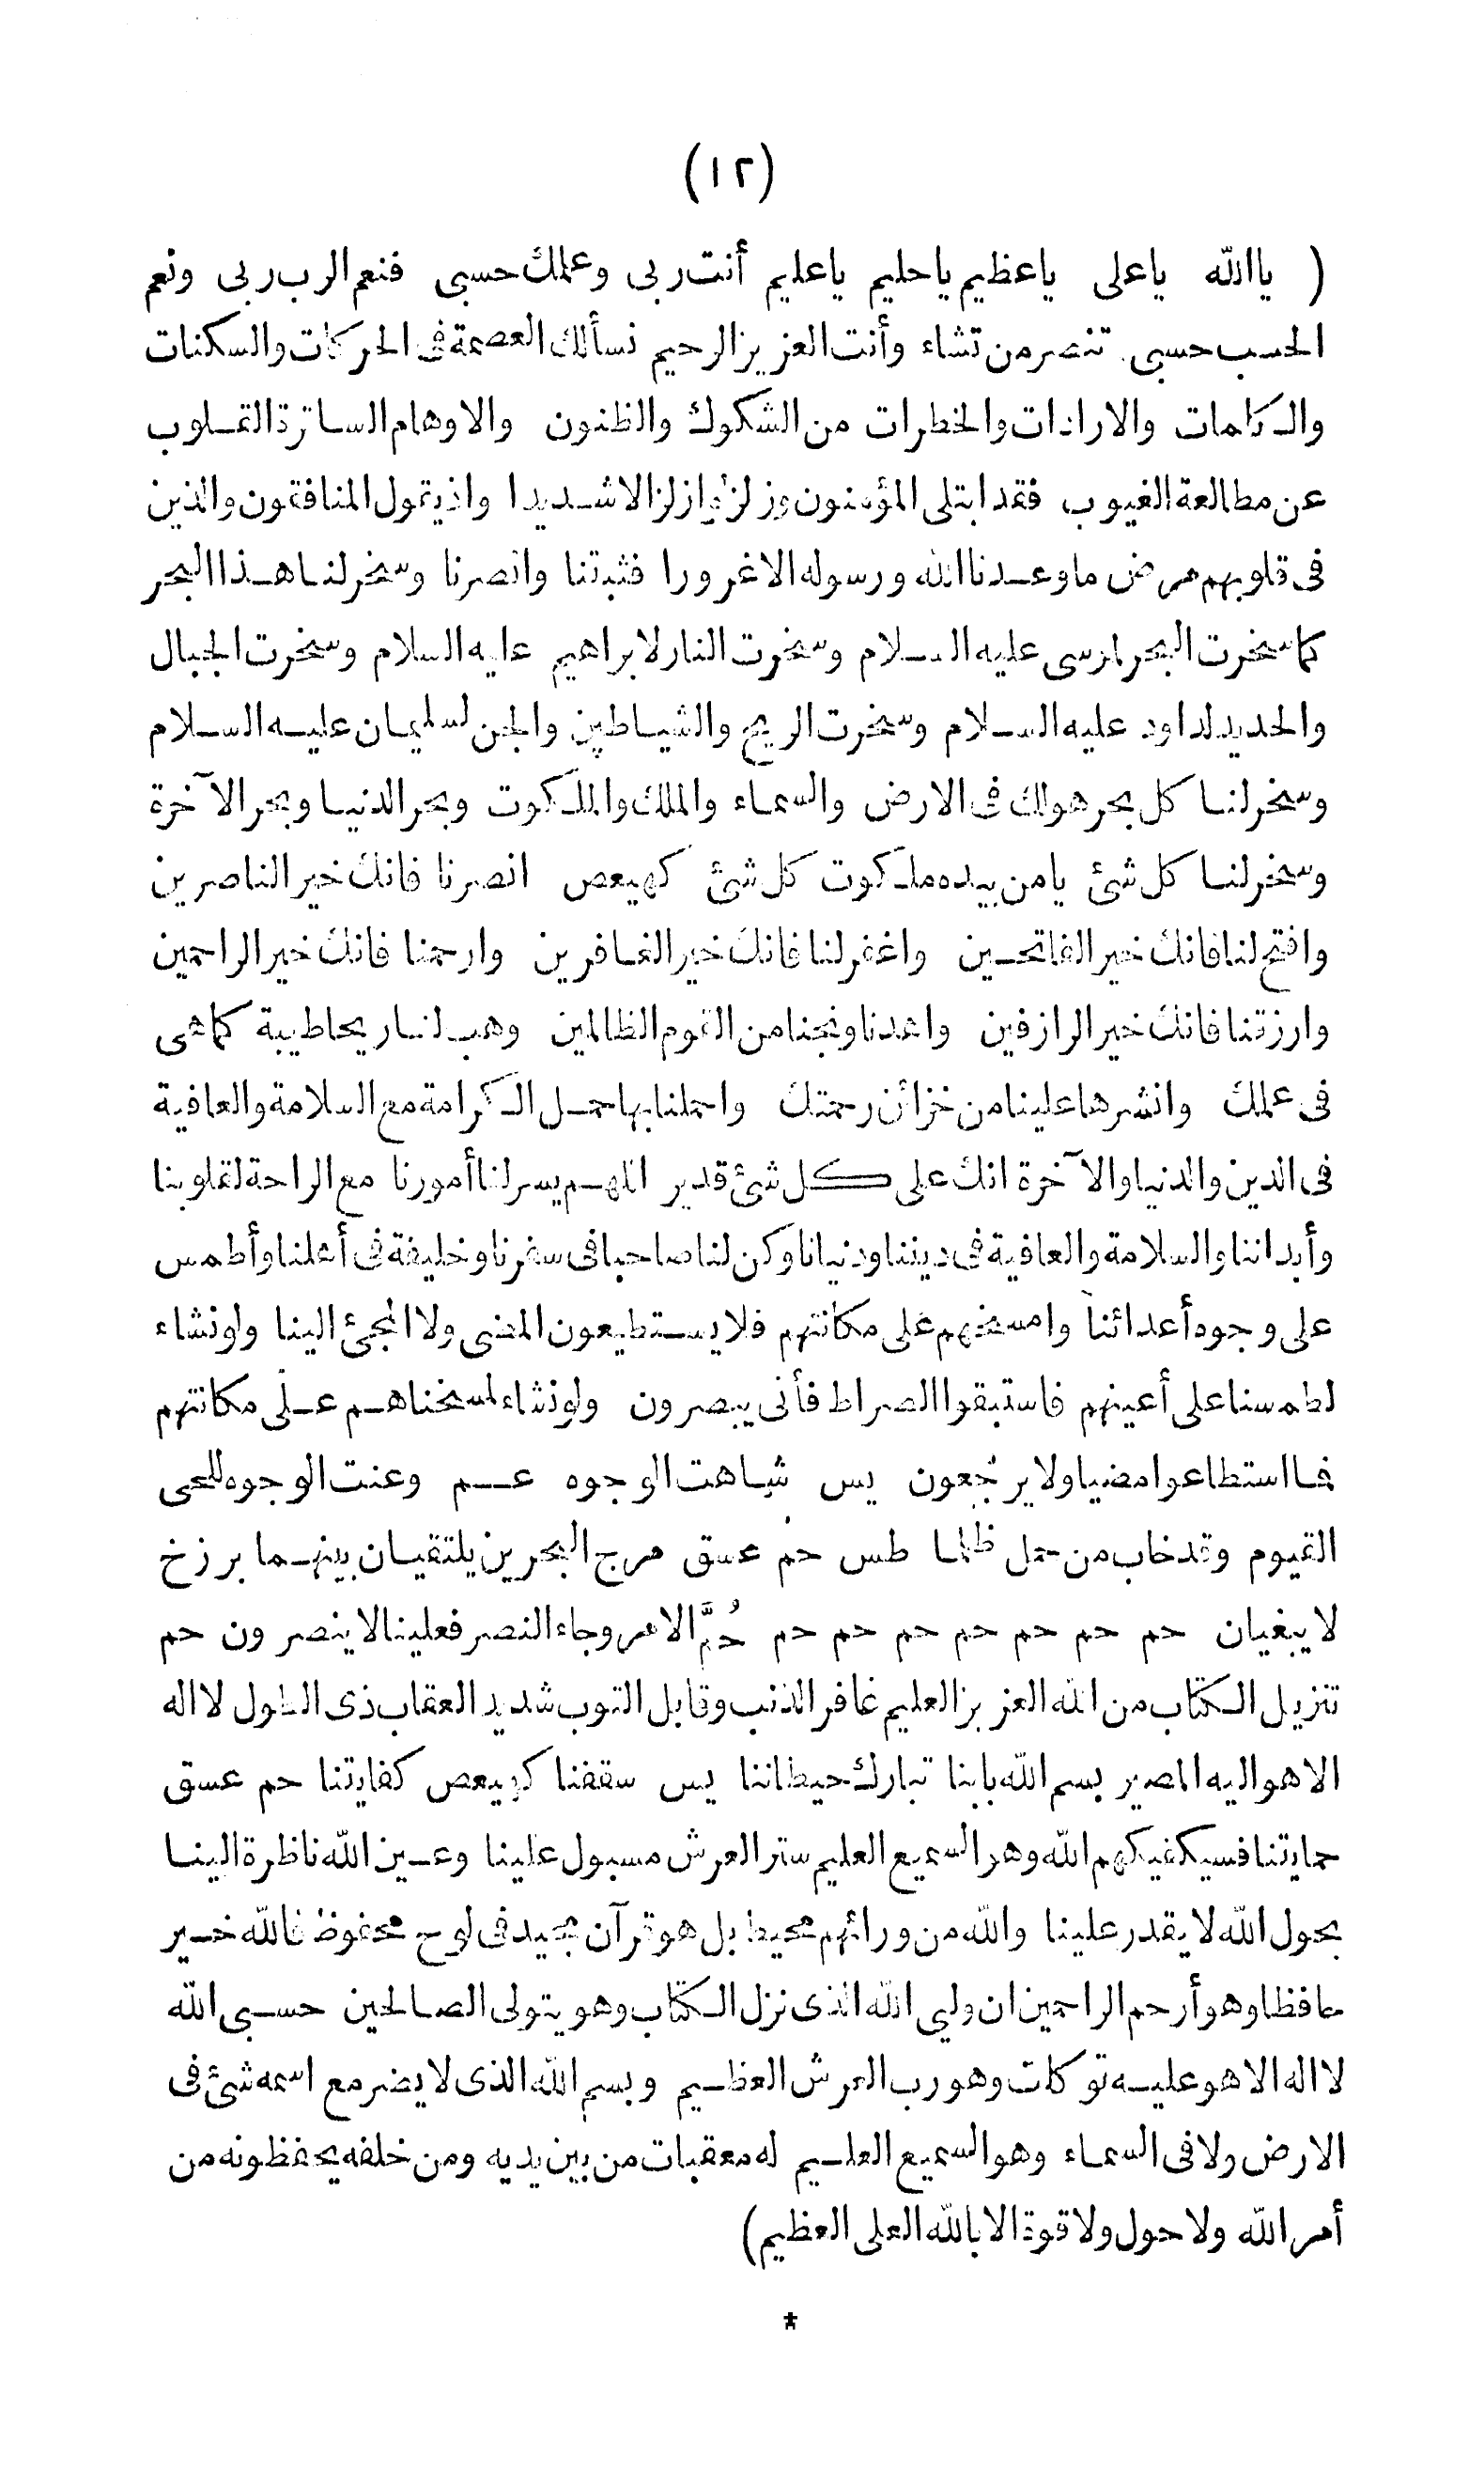 (١٢)
( يا الله يا على يا عظيم يا حليم يا عليم أنت ربى وعلمك حسبى فنعم الرب ربى ونعم
الحسب حسبى تنصر من تشاء وأنت العزيز الرحيم نسألك العصمة فى الحركات والسكنات
والكلمات والارادات والخطرات من الشكوك والظنون والاوهام الساترة القلوب
عن مطالعة الغيوب فقد ابتلى المؤمنون وزلزلوا زلزالا شديدا واذ يقول المنافقون والذين
فى قلوبهم مرض ما وعدنا الله ورسوله الا غرورا فثبتنا وانصرنا وسخر لنا هذا البحر
كما سخرت البحر لموسى عليه السلام وسخرت النار لابراهيم عليه السلام وسخرت الجبال
والحديد لداود عليه السلام وسخرت الريح والشياطين والجن لسليمان عليه السلام
وسخر لنا كل بحر هو لك فى الارض والسماء والملك والملكوت وبحر الدنيا وبحر الآخرة
وسخر لنا كل شئ يا من بيده ملكوت كل شئ كهيعص انصرنا فانك خير الناصرين
وافتح لنا فانك خير الفاتحين واغفر لنا فانك خير الغافرين وارحمنا فانك خير الراحمين
وارزقنا فانك خير الرازقين واهدنا ونجنا من القوم الظالمين وهب لنا ريحا طيبة كما هى
فى علمك وانشرها علينا من خزائن رحمتك واحملنا بها حمل الكرامة مع السلامة والعافية
فى الدين والدنيا والآخرة انك على كل شئ قدير اللهم يسر لنا أمورنا مع الراحة لقلوبنا
وأبداننا والسلامة والعافية فى ديننا ودنيانا وكن لنا صاحبا فى سفرنا وخليفة فى أهلنا وأطمس
على وجوه أعدائنا وامسخهم على مكانتهم فلا يستطيعون المضى ولا المجئ الينا ولو نشاء
لطمسنا على أعينهم فاستبقوا الصراط فأنى يبصرون ولو نشاء لمسخناهم على مكانتهم
فما استطاعوا مضيا ولا يرجعون يس شاهت الوجوه عم وعنت الوجوه للحى
القيوم وقد خاب من حمل ظلما طس حم عسق مرج البحرين يلتقيان بينهما برزخ
لا يبغيان حم حم حم حم حم حم حم حُمَّ الامر وجاء النصر فعلينا لا ينصرون حم
تنزيل الكتاب من الله العزيز العليم غافر الذنب وقابل التوب شديد العقاب ذى الطول لا اله
الا هو اليه المصير بسم الله بابنا تبارك حيطاننا يس سقفنا كهيعص كفايتنا حم عسق
حمايتنا فسيكفيكهم الله وهو السميع العليم ستر العرش مسبول علينا وعين الله ناظرة الينا
بحول الله لا يقدر علينا والله من ورائهم محيط بل هو قرآن مجيد فى لوح محفوظ فالله خير
حافظا وهو أرحم الراحمين ان وليي الله الذى نزل الكتاب وهو يتولى الصالحين حسبى الله
لا اله الا هو عليه توكلت وهو رب العرش العظيم وبسم الله الذى لا يضر مع اسمه شئ فى
الارض ولا فى السماء وهو السميع العليم له معقبات من بين يديه ومن خلفه يحفظونه من
أمر الله ولا حول ولا قوة الا بالله العلى العظيم)
*